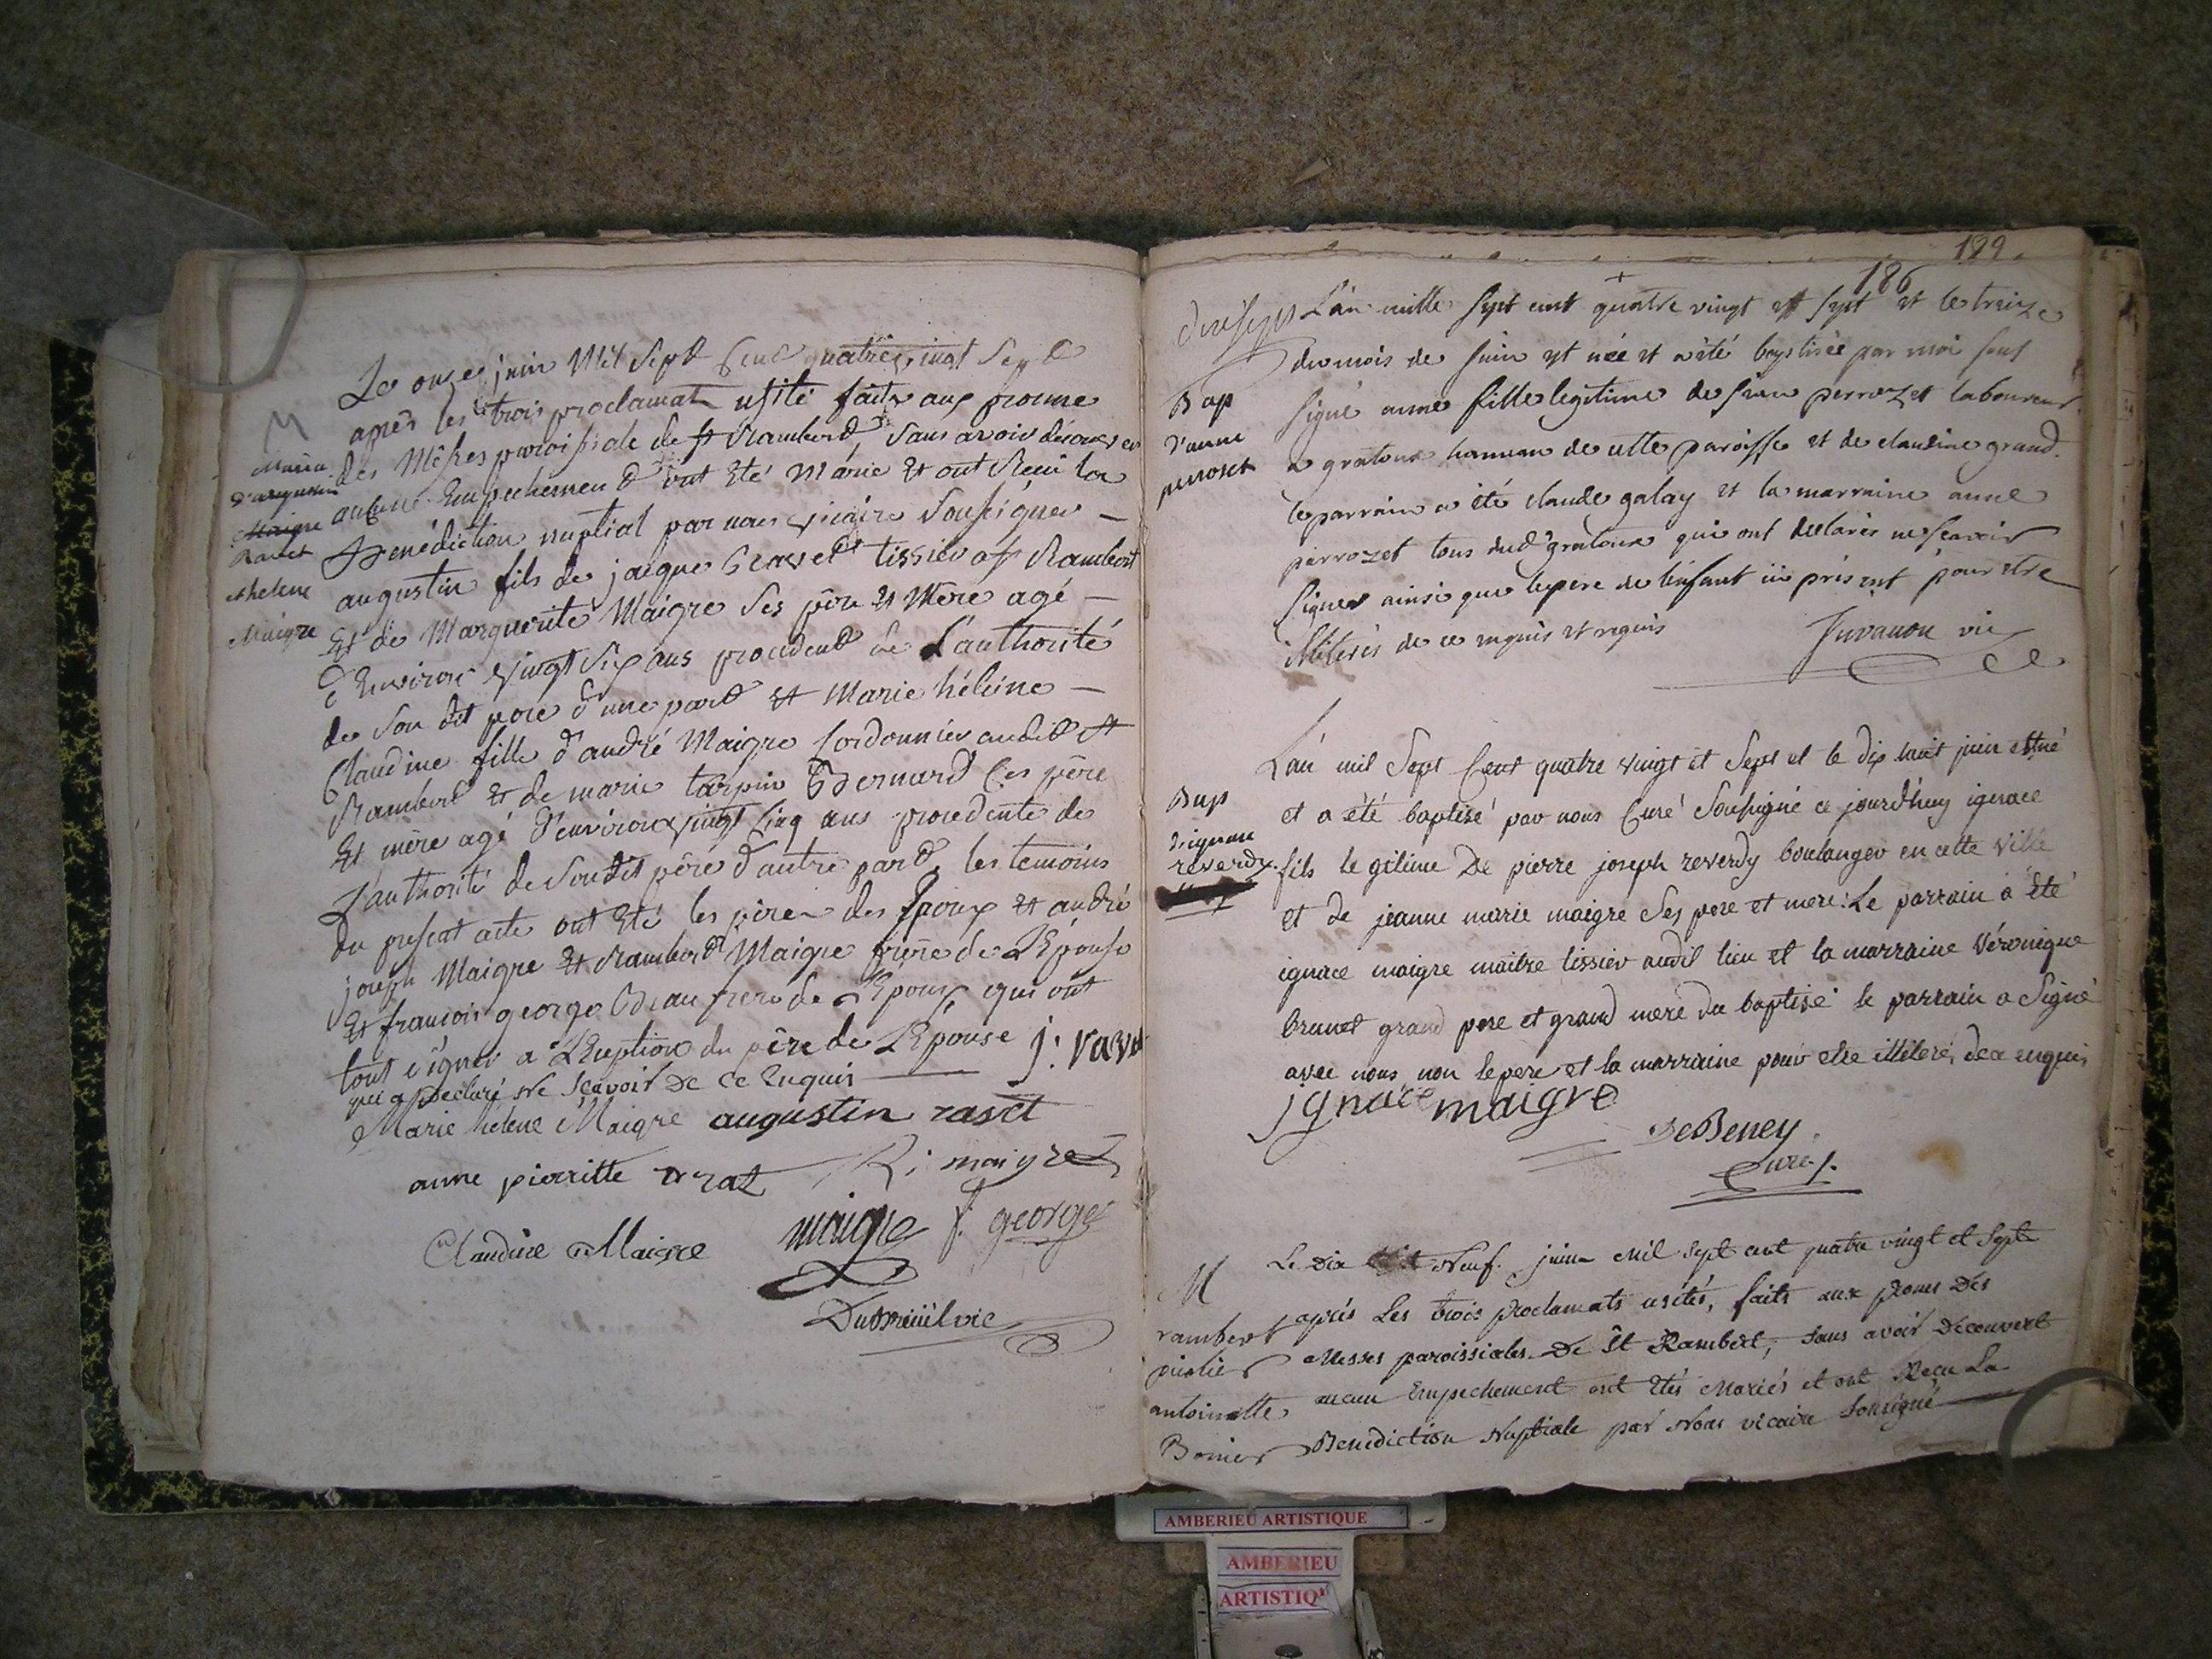 Le onze juin Mil Sept Cent quatrevingt Sept
après les trois proclamat usité faits aux prone
des Mêsses paroissiale de st Rambert, Sans avoir découvert
aucune Empechement ont Eté Marié Et ont Recu la
Bénédiction nuptial par nous vicaire Sousigner
augustin fils de jacque Gravet tissier a st Rambert
Et de Marguerite Maigre Ses père Et Mère agé
d'Environ vingt Six ans procedent de L'authorité
de Son dit père d'une part Et Marie hélène
Claudine fille d'andré Maigre Cordonnier audit st
Rambert Et de marie tarpin Bernard Ces père
Et mère agé d'environ vingt Cinq ans procedente de
L'authorité de Soudit père d'autre part, les temoins
du present acte ont Eté les pères des Epoux et andré
joseph Maigre Et Rambert Maigre frère de L'Épouse
Et francois george Beaufrere de L'Epoux qui ont
tous signer a L'Eception du père de L'Epouse j: ravet
qui a Declaré Ne Scavoir De Ce Enquis
Marie hélène Maigre augustin ravet
anne pierritte R: maigre
Claudine Maigre maigre f. george
Dubreüil vic
M
d'augustin
Maigre
Ravet
et helene
Maigre
189
186
+
L'an mille sept cent quatre vingt et sept et le treize
du mois de juin est née et a été baptisée par moi sous
signé anne fille legitime de perrozet laboureur
a gratoux hameau de cette paroisse et de claudine grand.
le parrain a été claude galay et la marraine anne
perrozet tous dud gratoux qui ont déclarés ne scavoir
signer ainsi que le pere de l'enfant ici présent pour etre
illiterés de ce enquis et requis Juvanon vic
Bap
d'anne
perroset
L'an mil Sept Cent quatre vingt et Sept et le dix huit juin est né
et a été baptisé par nous Curé Soussigné ce jourd'huy ignace
fils legitime De pierre joseph reverdy boulanger en cette ville
et de jeanne marie maigre Ses pere et mere: Le parrain a été
ignace maigre maitre tissier audit lieu et la marraine Véronique
brunet grand pere et grand mere du baptisé le parrain a Signé
avec nous non le pere et la marraine pour etre illiterés de ce enquis
ignace maigre
DeBeney
Curé
Bap
d'ignace
reverdy.
Le Dix Neuf. juin Mil Sept cent quatre vingt et Sept
après Les trois proclamats usités, faits aux prones Des
Messes paroissiales De St Rambert, sans avoir Decouvert
aucun Empechement ont Etés Mariés et ont Recu La
Benediction Nuptiale par Nous vicaire Sousigné
M
rambert
antoinette
Bonier
AMBERIEU ARTISTIQUE
AMBERIEU
ARTISTIQ